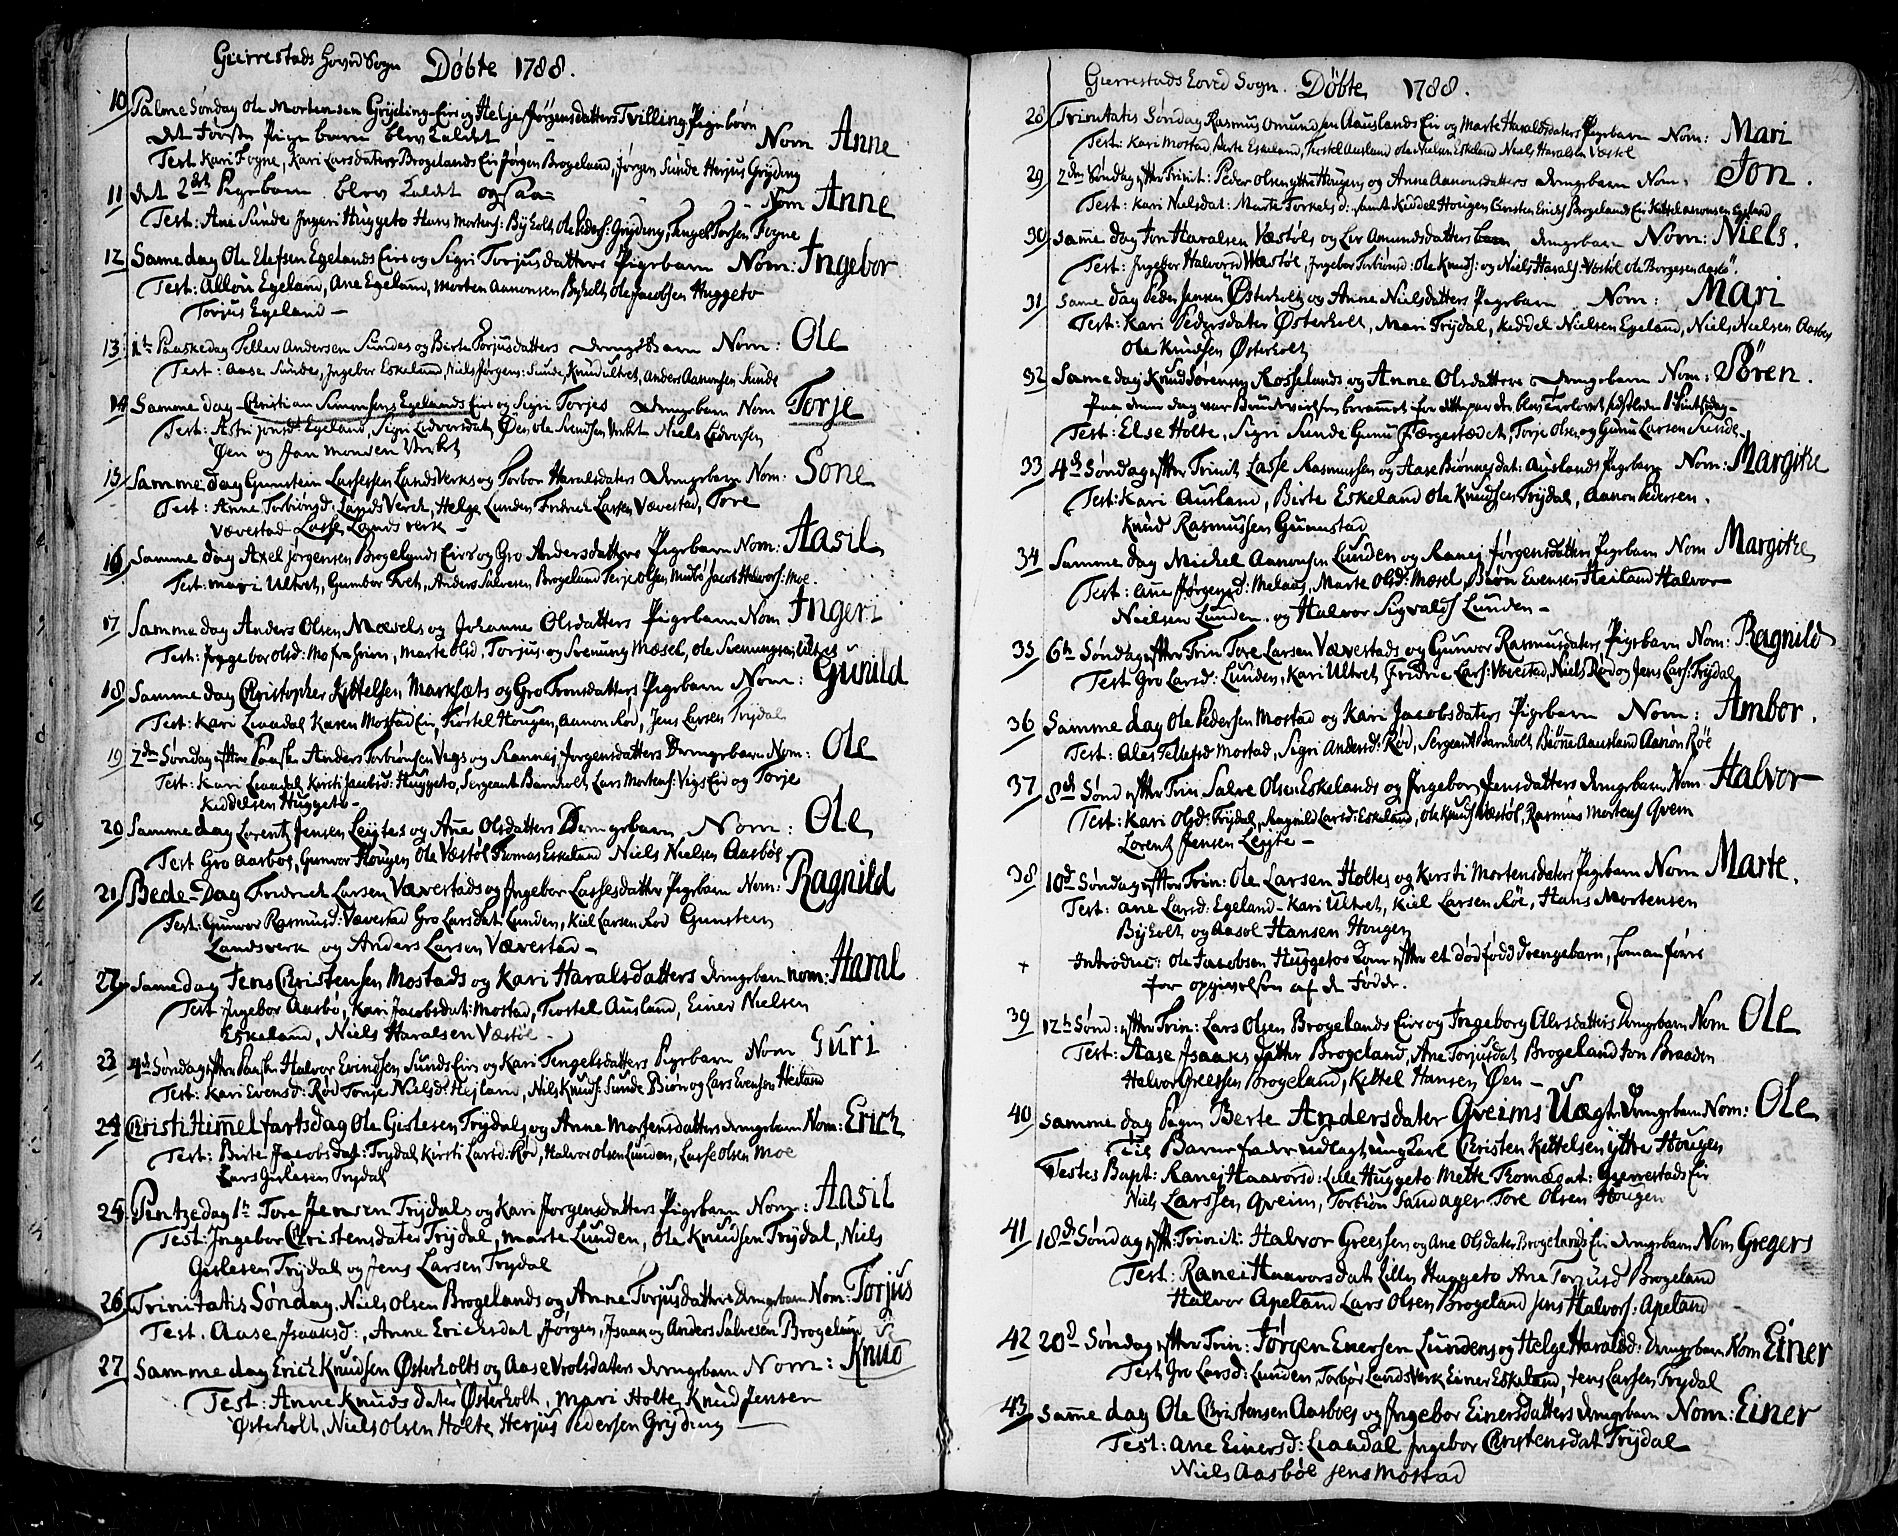 Gierrestads Hoved Sogn Døbte 1788.
10 Palme Søndag Ole Mortensen Gryting Eir og Helje Jørgensdatters Tvilling Pigebørn
det første Pigebarn blev kaldet Nom Anne
Test Kari Fogne, Kari Larsdatter Brogelands Eir Jørgen Brogeland, Jørgen Sunde Herjus Gryting
11 det 2det Pigebarn blev kaldt ogsaa Nom Anne
Test: Ane Sunde Ingeri Huggeto Hans Mortens: Byholt, Ole Peders: Gryting, Tengel Torsen Fogne
12 Same dag Ole Olefsen Egelands Eir og Sigri Torjusdatters Pigebarn Nom: Ingebor
Test: Allou Egeland, Ane Egeland, Morten Aanonsen Byholt Ole Jacobsen Huggeto
Torjus Egeland
13 1te Paaskedag Tellev Andersen Sundes og Birte Torjusdatters Drengebarn Nom: Ole
Test: Aase Sunde, Ingebor Eskeland, Niels Jørgens: Sunde, Knud Ultvet, Anders Aanonsen Sunde
14 Samme dag Christian Simonsen Egelands Eir og Sigri Torjes Drengebarn Nom Torje
Test: Astri Jonsd: Egeland, Sigri Ledvorsdat, Øen, Ole Svendsen Verket Niels Ledvorsen
Øen og Jan Monsen Verket
15 Samme dag Gunstein Lassesen Landsverks og Torbor Haralsdaters Drengebarn Nom: Sone
Test: Anne Torbiønsd: Landsverck, Helge Lunden Fridrich Larsen Vævestad, Tore
Vævestad Lasse Landsverk
16 Samme dag Axel Jørgensen Brogelands Eir og Gro Andersdatters Pigebarn Nom: Aasil
Test: Mari Ultvet, Gumbor Tvet, Anders Salvesen Brogeland Terje Olsen Jacob Halvors: Moe
17 Samme dag Anders Olsen Mæsels og Johanne Olsdatters Pigebarn Nom Ingeri
Test: Ingebor Olsd: Mo, Marte Olsd, Torjus og Svenung Mæsel, Ole Svenungsen
18 Samme dag Christopher Kittelsen Marksæts og Gro Tronsdatters Pigebarn Nom: Gunild
Test: Kari Livaadal Karen Mostad Eir, Tiøstel Hougen, Aanon Rød, Jens Larsen Trydal
19 2den Søndag efter Paaske Anders Torbiønsen Vigs og Rannei Jørgensdatters Drengebarn Nom: Ole
Test: Kari Livaadal, Kirsti Jacobsd: Huggeto, Sergeant Barnholt Lars Mortens: Vigs Eir og Torje
Kiddelsen Huggeto
20 Samme dag Lorentz Jensen Leiftes og Ane Olsdatters Drengebarn Nom: Ole
Test Gro Aasbøe, Gunvor Hougen Ole Væstøl Tomas Eskeland Niels Nielsen Aasbøe
21 Bede-Dag Fridrich Larsen Vævestads og Ingebor Lassesdatter Pigebarn Nom: Ragnild
Test: Gunvor Rasmusd: Vævestad Gro Larsdat Lunden, Kiel Larsen Rød Gunsteen
Landsverk og Anders Larsen Vævestad
22 Same dag Jens Christensen Mostads og Kari Haralsdatters Drengebarn Nom: Haral
Test Ingebor Aasbø, Kari Jacobsdat: Mostad, Tiostel Ausland, Einer Nielsen
Eskeland, Niels Haralsen Væstøl
23 4de Søndag efter Paaske Halvor Evindsen Sunds Eir og Kari Tengelsdatters Pigebarn Nom Guri
Test: Kari Evensd: Rød Torje Nielsd: Hejland, Nils Knuds: Sunde Biørn og Lars Evensen Heiland
24 Christi Himmelfartsdag Ole Gislesen Trydals og Anne Mortensdatters Drengebarn Nom: Erich
Test: Birte Jacobsdat: Trydal Kirsti Larsd: Rød, Halvor Olsen Lunden, Lasse Olsen Moe
Lars Gislesen Trydal
25 Pintzedag 1te Tore Jensen Trydals og Kari Jørgensdatters Pigebarn Nom: Aasil
Test: Ingebor Christensdater Trydal, Marte Lunden, Ole Knudsen Trydal, Niels
Gislesen Trydal og Jens Larsen Trydal
26 Trinitatis Søndag, Niels Olsen Brogelands og Anne Torjusdatters Drengebarn Nom: Torjus
Test. Aase Isaaksd:, Anne Erichsdat Jørgen, Isaac og Anders Salvesen Brogeland
27 Samme dag Erich Knudsen Østerholts og Aase Vrolsdaters Drengebarn Nom: Knud
Test: Anne Knudsdater Østerholt, Mari Holte, Knud Jensen
Østerholt, Niels Olsen Holte Herjus Pedersen Gryting
Gierrestads Hoved Sogn. Døbte 1788.
28 Trinitatis Søndag Rasmus Omundsen Aauslands Eir og Marte Haraldsdaters Pigebarn Nom: Mari
Test: Kari Mostad Berte Eskeland, Tiostel Ausland Ole Nielsen Eskeland Niels Haralsen Væstøl
29 2den Søndag efter Trinit: Peder Olsen ytre Hougens og Anne Aanonsdatters Drengebarn Nom: Jon.
Test: Kari Nielsdat: Marte Torkelsd: samt Kiddel Hougen Carsten Erichs Brogelands Eir Kittel Aanonsen Egeland
30 Same dag Jon Haralsen Væstøls og Liv Amundsdatters Drengebarn Nom: Niels.
Test: Ingebor Halvorsd Væstøl, Ingebor Torbiønsd: Ole Knuds: og Niels Harals: Væstøl Ole Børgesen Aasbø.
31 Same dag Peder Jensen Østerholts og Anne Nielsdatters Pigebarn Nom: Mari
Test: Kari Pedersdater Østerholt, Mari Trydal, Keddel Nielsen Egeland, Niels Nielsen Aasbøe
Ole Knudsen Østerholt
32 Same dag Knud Sørensen Rosselands og Anne Olsdatters Drengebarn Nom: Søren.
Paa denne dag var Brudevielsen berammet for dette par der blev Trolovet sidstleden 1te Pintsedag
Test: Else Holte, Sigri Sunde Gunu Færgestædet, Torje Olsen og Gunu Larsen Sunde
33 4de Søndag efter Trinit Lasse Rasmussen og Aase Biønnesdat: Auslands Pigebarn Nom: Margithe
Test: Kari Ausland, Birte Eskeland Ole Knudsen Trydal, Aanon Pedersen.
Knud Rasmussen Gumastad
34 Samme dag Michel Aanonsen Lunden og Ranej Jørgensdatters Pigebarn Nom Margithe
Test: Ane Jørgensd: Melaas, Marte Olsd: Mæsel Biørn Evensen Heiland Halvor
Nielsen Lunden. og Halvor Sigvalds Lunden
35 6te Søndag efter Trin Tore Larsen Vævestads og Gunvor Rasmusdaters Pigebarn Nom: Ragnild
Test Gro Larsd: Lunden, Kari Ultvet Fridric Lars: Vævestad, Niels Rød og Jens Lars: Trydal
36 Samme dag Ole Pedersen Mostad og Kari Jacobsdaters Pigebarn Nom: Ambor.
Test: Ales Tellefsd Mostad, Sigri Andersd: Rød, Sergeant Barnholt Biønne Aausland Aanon Røe
37 8de Sønd efter Trin Salve Olsen Eskelands og Ingebor Jensdatters Drengebarn Nom: Halvor
Test: Kari Olsd: Trydal, Ragnild Larsd: Eskeland, Ole Knuds Væstøl, Rasmus Mortens Qveim
Lorentz Jensen Leifte
38 10de Søndag efter Trin: Ole Larsen Holtes og Kirsti Mortensdaters Pigebarn Nom Marte.
Test: Ane Larsd: Egeland Kari Ultvet, Kiel Larsen Røe, Hans Mortensen
Byholt og Aasol Hansen Hougen
+ Introduc: Ole Jacobsen Huggetos Kone efter et dødfødd Drengebarn, som anføres
for opgivelsen af de Fødde.
39 12te Sønd: efter Trin: Lars Olsen Brogelands Eir og Ingeborg Olersdatters Drengebarn Nom Ole
Test: Aase Isaaksdatter Brogeland, Ane Torjusdat Brogeland Jon Braaden
Halvor Greessen Brogeland, Kittel Hansen Øen
40 Samme dag Pigen Berte Andersdater Qveims Uægte Drengebarn Nom: Ole
Til Barnefader udlagt ungkarl Christen Kittelsen ytre Hougen
Testes Bapt: Ranej Haavorsd: Lille Huggeto Mette Thomædat: Gierrestads Eir
Niels Larssen Qveim, Torbiøn Sandager Tore Olsen Hougen
41 18de Søndag efter Trinit: Halvor Greessen og Ane Olsdater Brogelands Eir Drengebarn Nom Gregers
Test: Ranei Haavorsdat Lille Huggeto Ane Torjusd Brogeland
Halvor Apeland Lars Olsen Brogeland Jens Halvors: Apeland
42 20de Søndag efter Trin: Jørgen Einersen Lundens og Helge Haraldsd: Drengebarn Nom Einer
Test Gro Larsd: Lunden, Torbor Landsverk Einer Eskeland, Jens Larsen Trydal
43 Same dag Ole Christensen Aasboes og Ingebor Einersdatters Drengebarn Nom: Einer
Test: Ane Einersd: Livaadal Ingebor Christensdat Trydal
Niels Aasbøe Jens Mostad